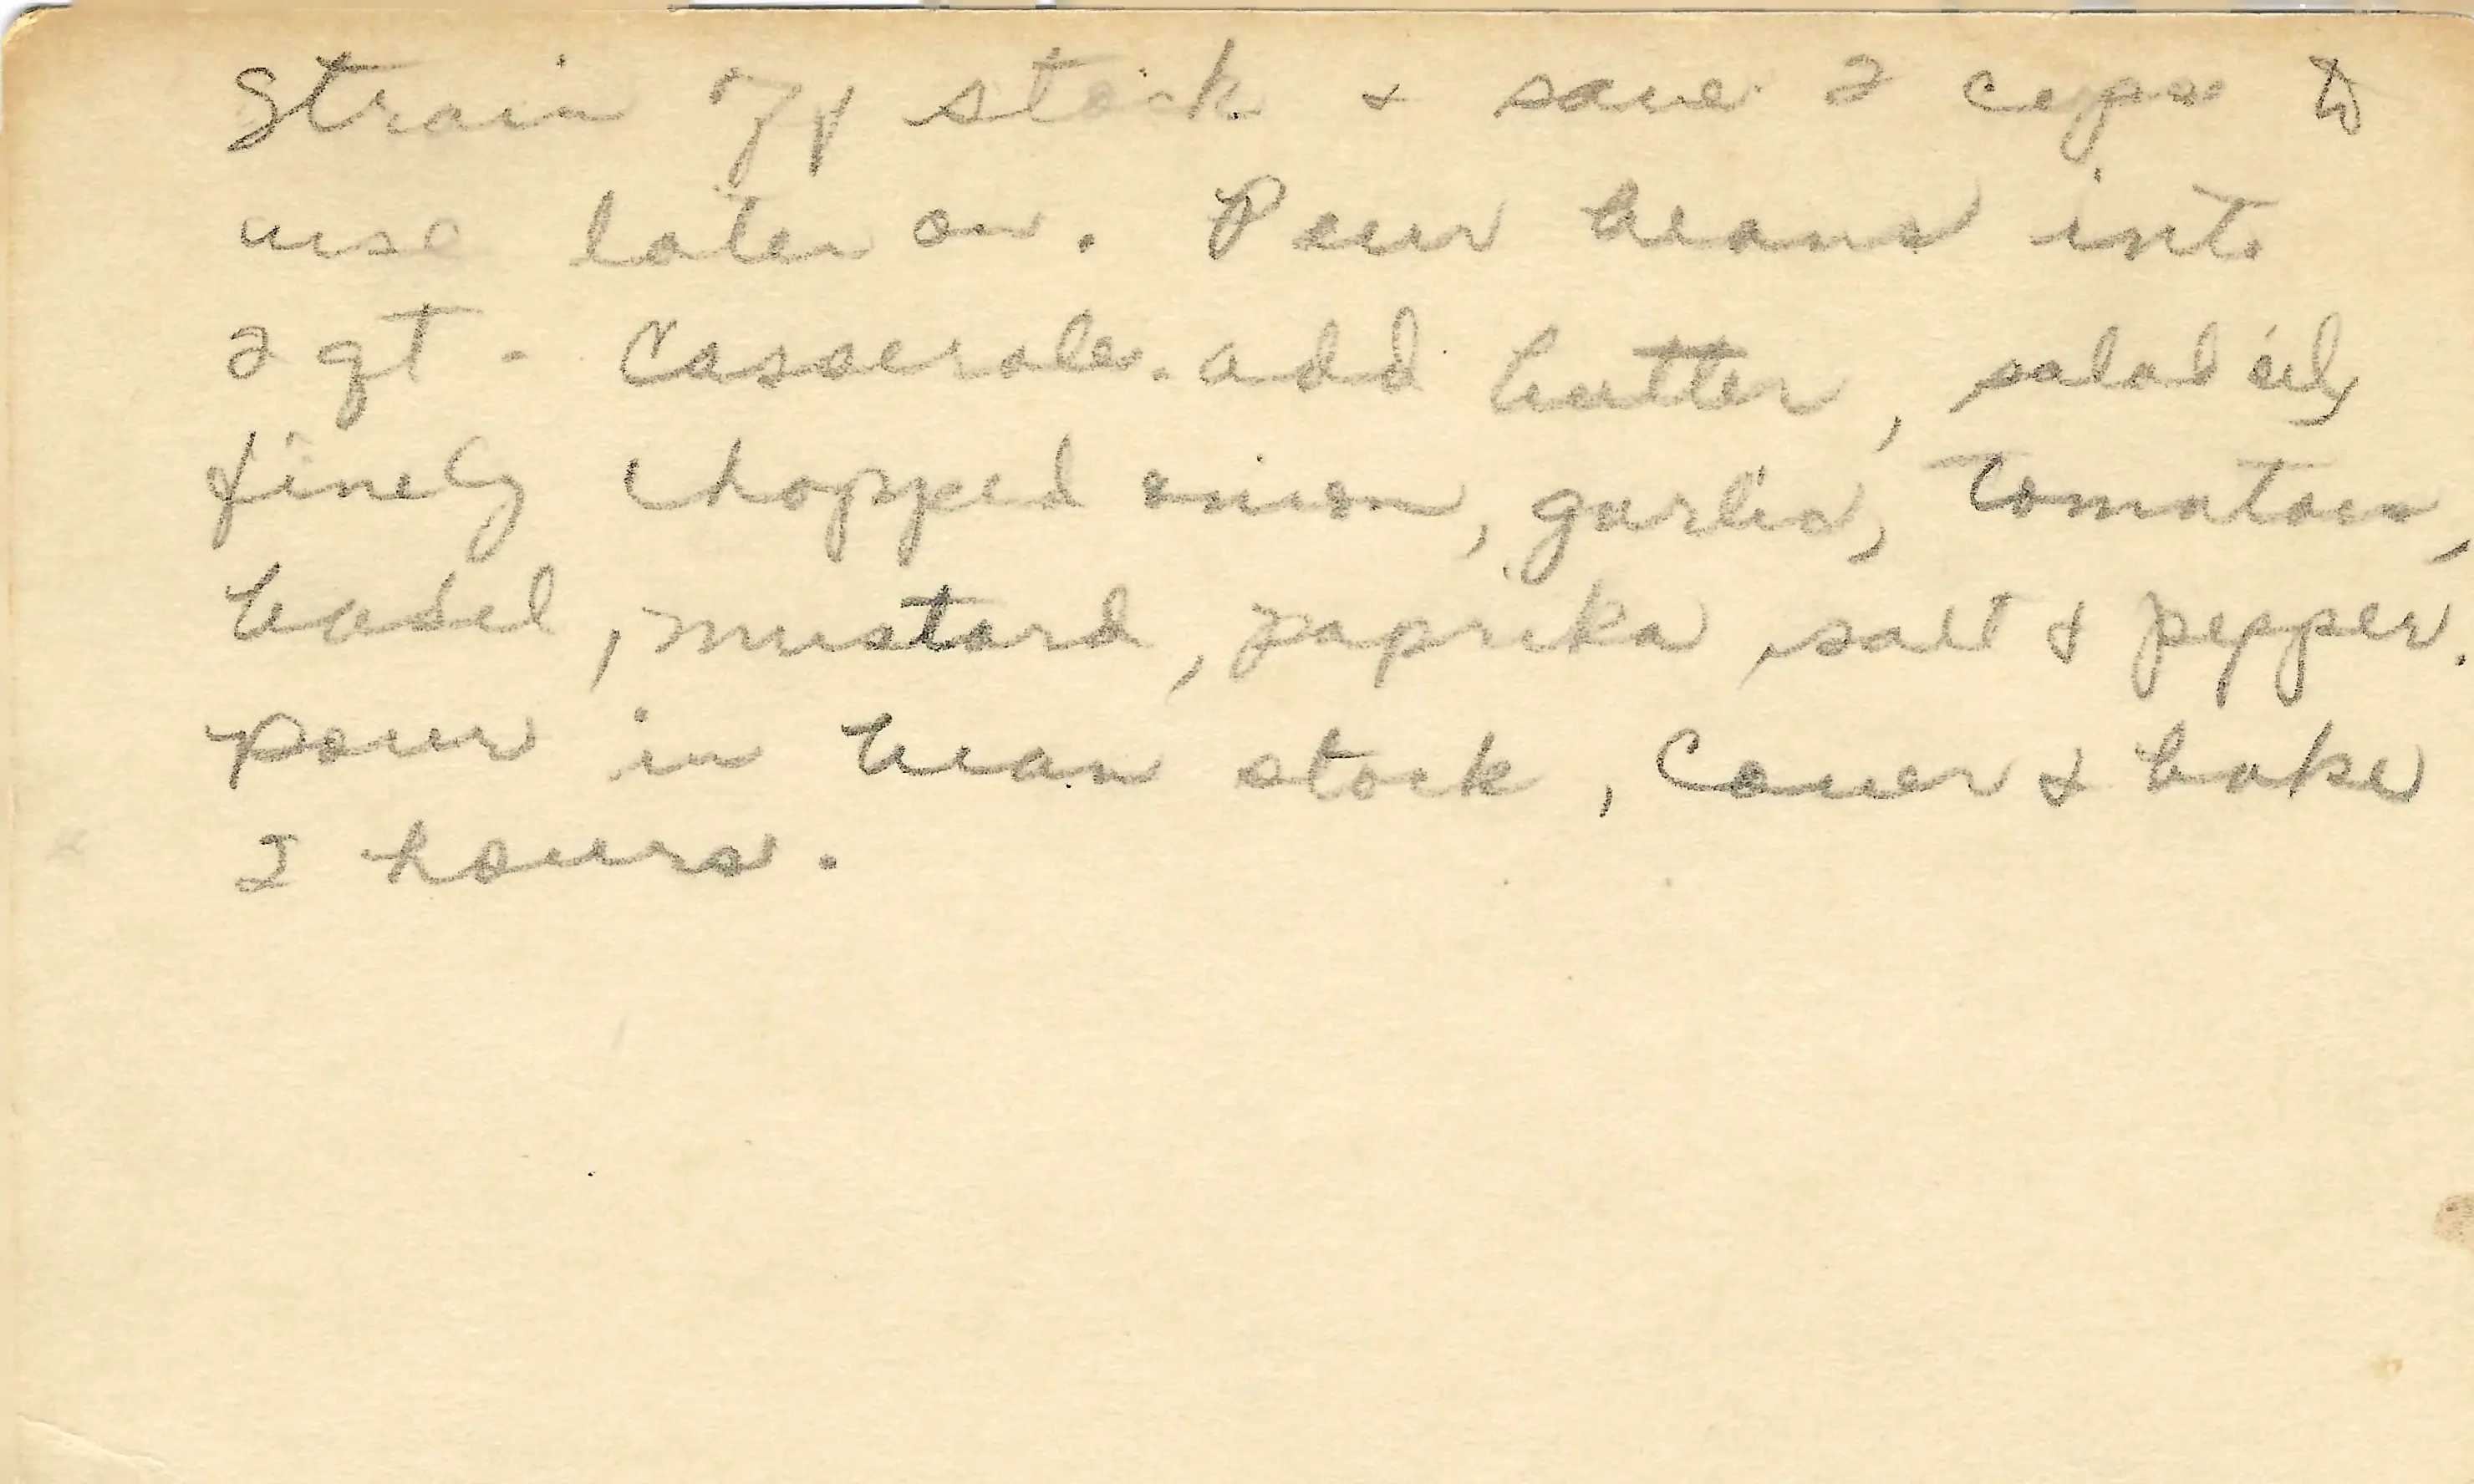 Strain off stock & save 2 cups to
use later on. Pour beans into
2 qt. Casserole. add butter, salad oil,
finely chopped onion, garlic, tomatoes,
basel, mustard, paprika, salt & pepper.
pour in bean stock, Cover & bake
2 hours.